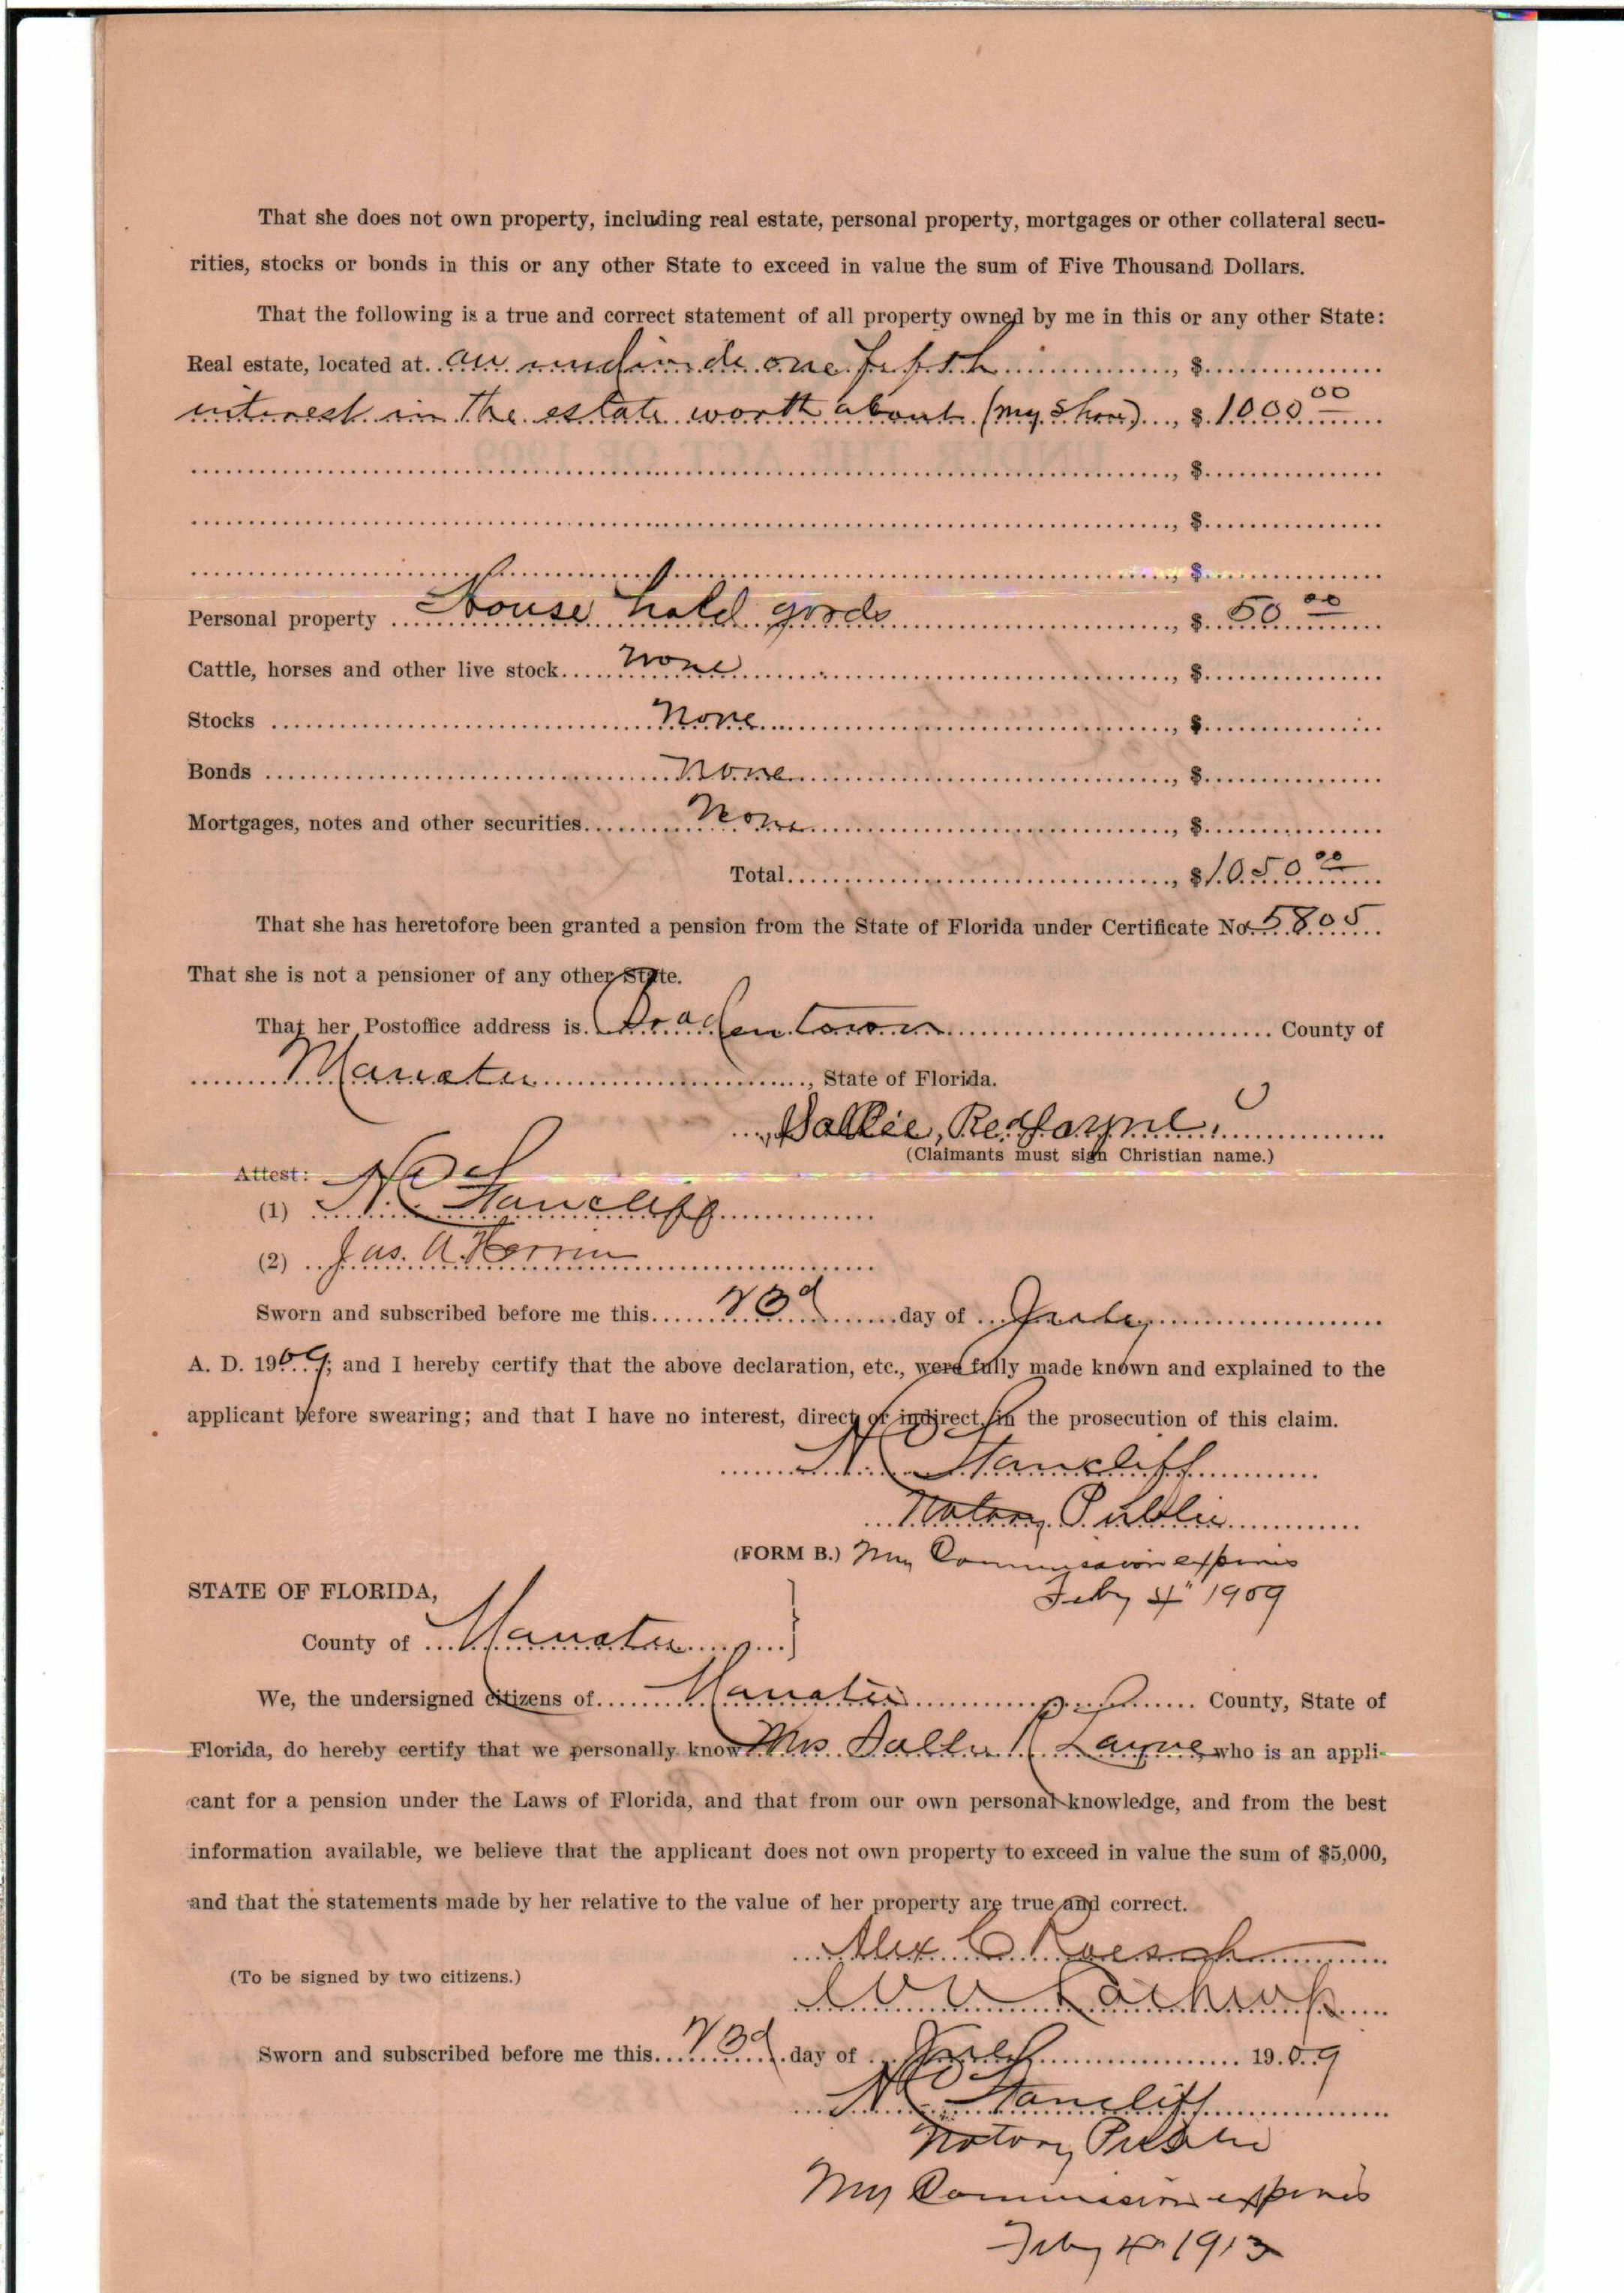 That she does not own property, including real estate, personal property, mortgages or other collateral secu-
rities, stocks or bonds in this or any other State to exceed in value the sum of Five Thousand Dollars.
That the following is a true and correct statement of all property owned by me in this or any other State:
Real estate, located at an undivide one fifth, $
interest in the estate worth about (my share), $ 1000 00
, $
, $
, $
Personal property House hold goods, $ 50 00
Cattle, horses and other live stock none, $
Stocks None, $
Bonds None, $
Mortgages, notes and other securities None, $
Total, $ 1050 00
That she has heretofore been granted a pension from the State of Florida under Certificate No. 5805
That she is not a pensioner of any other State.
That her Postoffice address is Braidentown County of
Manatee, State of Florida.
Sallie, Red
(Claimants must sign Christian name.)
Attest:
(1) Stancliff
(2) Jas. A. Herrin
Sworn and subscribed before me this 23d day of July
A. D. 1909; and I hereby certify that the above declaration, etc., were fully made known and explained to the
applicant before swearing; and that I have no interest, direct or indirect, in the prosecution of this claim.
Stancliff
Notary Public
(FORM B.) My Commission expires
Feby 4" 1909
STATE OF FLORIDA,
County of Manatee
We, the undersigned citizens of Manatee County, State of
Florida, do hereby certify that we personally know Mrs Sallie R Layne, who is an appli-
cant for a pension under the Laws of Florida, and that from our own personal knowledge, and from the best
information available, we believe that the applicant does not own property to exceed in value the sum of $5,000,
and that the statements made by her relative to the value of her property are true and correct.
Alex C Roesch
(To be signed by two citizens.)
Sworn and subscribed before me this 23d day of July 1909
Stancliff
Notary Public
My Commission expires
Feby 4" 1913